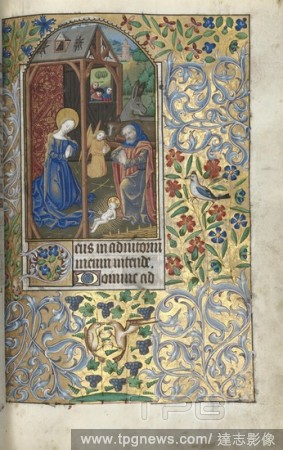 Deus in adiutorium
meum intende,
Domine ad
TPG
www.tpgnews.com/達志影像